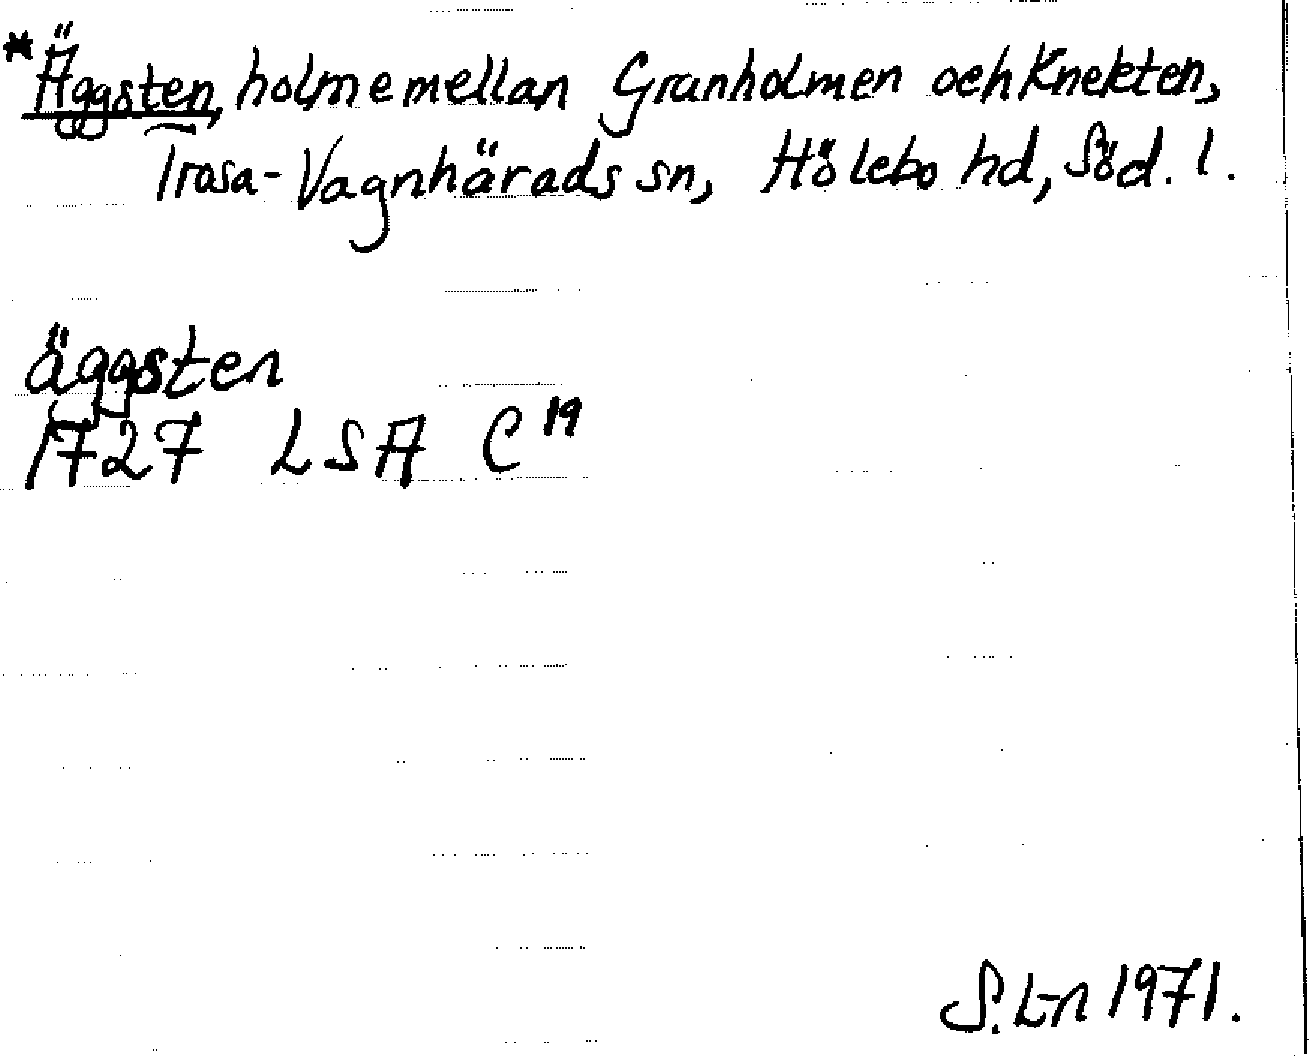 *Äggsten, holme mellan Granholmen och Knekten,
Trosa-Vagnhärads sn, Hölebo hd, Söd. l.
äggsten
1727 LSA C19
S. L-n 1971.